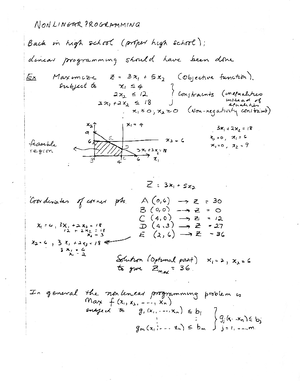 NONLINEAR PROGRAMMING
Back in high school (proper high school);
linear programming should have been done
Ex Maximize Z = 3x₁ + 5x₂ (Objective function).
subject to x₁ ≤ 4
2x₂ ≤ 12
3x₁ + 2x₂ ≤ 18
constraints (inequalities instead of
x₁ ≥ 0, x₂ ≥ 0 (Non-negativity constraint)
x₂
x₁ = 4
9
6
x₂ = 6
3x₁ + 2x₂ = 18
x₁
4
6
feasible
region
3x₁ + 2x₂ = 18
x₂ = 0, x₁ = 6
x₁ = 0, x₂ = 9
Z = 3x₁ + 5x₂
Coordinates of corner pts
A (0,6) → Z = 30
B (0,0) → Z = 0
C (4,0) → Z = 12
D (4,3) → Z = 27
E (2,6) → Z = 36
x₁ = 4, 3x₁ + 2x₂ = 18
12 + 2x₂ = 18
x₂ = 3
x₂ = 6, 3x₁ + 2x₂ = 18
3x₁ = 6
x₁ = 2
Solution (Optimal point) x₁ = 2, x₂ = 6
to give Zmax = 36
In general the nonlinear programming problem is
Max f(x₁, x₂, ..., xₙ)
subject to g₁(x₁, ..., xₙ) ≤ b₁
gₘ(x₁, ..., xₙ) ≤ bₘ
gⱼ(x₁, ..., xₙ) ≤ bⱼ
j = 1, ... m